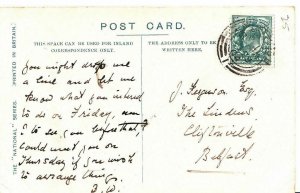 POST CARD.
THIS SPACE CAN BE USED FOR INLAND
CORRESPONDENCE ONLY.
THE ADDRESS ONLY TO BE
WRITTEN HERE.
THE "NATIONAL" SERIES. PRINTED IN BRITAIN.
You might drop me
a line and let me
know what you intend
to do on Friday,
to see you before that I
could meet you on
Thursday if you wish
to arrange things.
J. Ferguson Esq.
The Lindens
Cliftonville
Belfast.